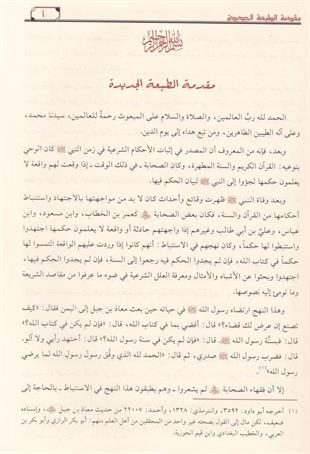 مقدمة الطبعة الجديدة
أ
بسم الله الرحمن الرحيم
مقدمة الطبعة الجديدة
الحمد لله ربّ العالمين، والصلاة والسلام على المبعوث رحمةً للعالمين، سيدنا محمد،
وعلى آله الطيبين الطاهرين، ومن تبع هداه إلى يوم الدين.
وبعد، فإنه من المعروف أن المصدر في إثبات الأحكام الشرعية في زمن النبي ﷺ كان الوحي
بنوعيه: القرآن الكريم والسنة المطهرة، وكان الصحابة ـ في ذلك الوقت ـ إذا وقعت لهم واقعة لا
يعلمون حكمها لجؤوا إلى النبي ﷺ لبيان الحكم فيها.
وبعد وفاة النبي ﷺ ظهرت وقائع وأحداث كان لا بد من مواجهتها بالاجتهاد واستنباط
أحكامها من القرآن والسنة، فكان بعض الصحابة كعمر بن الخطاب، وابن مسعود، وابن
عباس، وعليّ بن أبي طالب وغيرهم إذا واجهتهم حادثة أو واقعة لا يعلمون حكمها اجتهدوا
واستنبطوا لها حكماً، وكان نهجهم في الاستنباط: أنهم كانوا إذا وردت عليهم الواقعة التمسوا لها
حكماً في كتاب الله، فإن لم يجدوا الحكم فيه رجعوا إلى السنة، فإن لم يجدوا الحكم فيها،
اجتهدوا وبحثوا عن الأشباه والأمثال ومعرفة العلل الشرعية في ضوء ما عرفوا من مقاصد الشريعة
وما تومئ إليه نصوصها.
وهذا النهج ارتضاه رسول الله ﷺ في حياته حين بعث معاذ بن جبل إلى اليمن فقال: «كيف
تصنع إن عرض لك قضاء؟» قال: أقضي بما في كتاب الله، قال: «فإن لم يكن في كتاب الله؟»
قال: فبسنّة رسول الله ﷺ، قال: «فإن لم يكن في سنة رسول الله؟» قال: أجتهد رأيي ولا آلو.
قال: فضرب رسول الله ﷺ صدري، ثم قال: «الحمد لله الذي وفّق رسولَ رسولِ الله لما يرضي
رسول الله»(١).
إلا أن فقهاء الصحابة لم يشعروا ـ وهم يطبقون هذا النهج في الاستنباط ـ بالحاجة إلى
(١) أخرجه أبو داود: ٣٥٩٢، والترمذي: ١٣٢٨، وأحمد: ٢٢٠٠٧ من حديث معاذ بن جبل، وإسناده
ضعيف، لكن مال إلى القول بصحته غير واحد من المحققين من أهل العلم منهم: أبو بكر الرازي وأبو بكر بن
العربي، والخطيب البغدادي وابن قيم الجوزية.